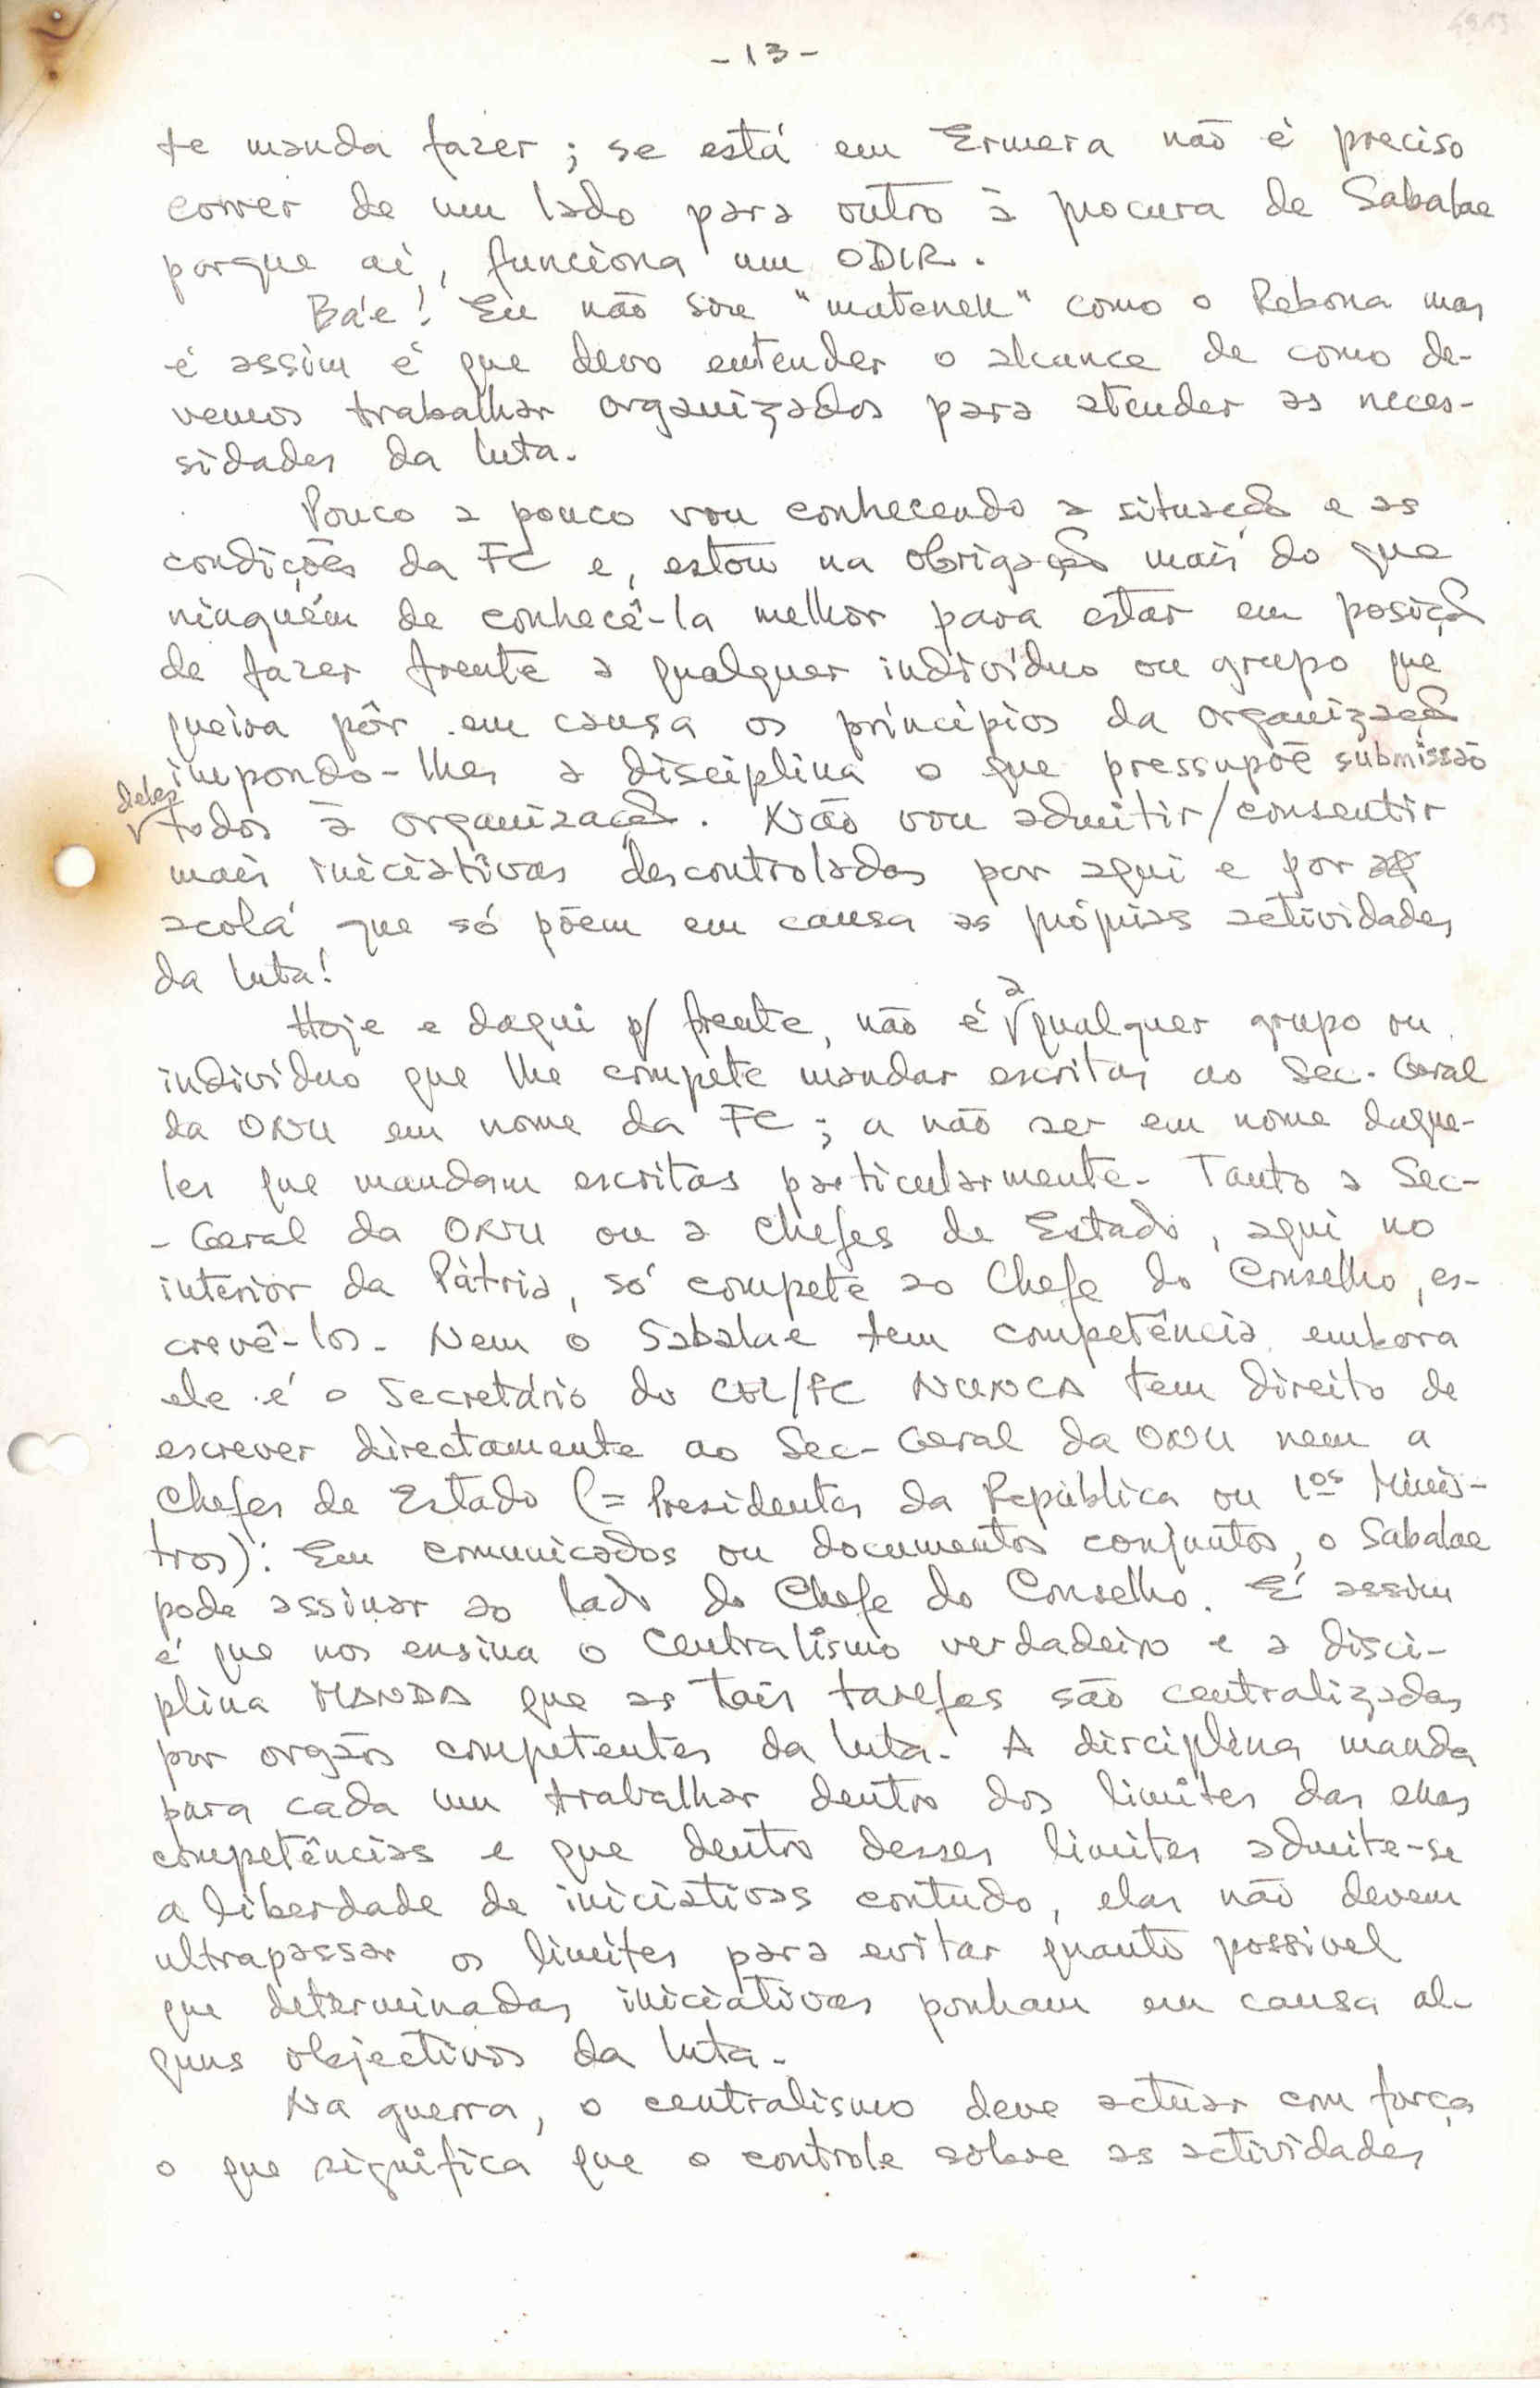 -13-
te manda fazer; se está em Ermera não é preciso
correr de um lado para outro à procura de Sabalae
porque aí, funciona um ODIR.
Ba'e! Eu não sou "matenek" como o Rebona mas
é assim é que devo entender o alcance de como de-
vemos trabalhar organizados para atender as neces-
sidades da luta.
Pouco a pouco vou conhecendo a situação e as
condições da FC e, estou na obrigação mais do que
ninguém de conhecê-la melhor para estar em posição
de fazer frente a qualquer indivíduo ou grupo que
queira pôr em causa os princípios da organização
impondo-lhes a disciplina o que pressupõe submissão
deles
todos à organização. Não vou admitir/consentir
mais iniciativas descontroladas por aqui e por
acolá que só põem em causa as própias actividades
da luta!
Hoje e daqui p/ frente, não é a qualquer grupo ou
individuo que lhe compete mandar escritas ao Sec-Geral
da ONU em nome da FC; a não ser em nome daque-
les que mandam escritas particularmente. Tanto a Sec-
-Geral da ONU ou a Chefes de Estado, aqui no
interior da Pátria, só compete ao Chefe do Conselho, es-
crevê-los. Nem o Sabalae tem competência embora
ele é o Secretário do CEL/FC NUNCA tem direito de
escrever directamente ao Sec-Geral da ONU nem a
Chefes de Estado (= Presidentes da República ou 1os Minis-
tros). Em comunicados ou documentos conjuntos, o Sabalae
pode assinar ao lado do Chefe do Conselho. É assim
é que nos ensina o Centralismo verdadeiro e a disci-
plina MANDA que as tais tarefas são centralizadas
por orgãos competentes da luta. A disciplina manda
para cada um trabalhar dentro dos limites das suas
competências e que dentro desses limites admite-se
a liberdade de iniciativas contudo, elas não devem
ultrapassar os limites para evitar quanto possivel
que determinadas iniciativas ponham em causa al-
guns objectivos da luta.
Na guerra, o centralismo deve actuar com força
o que significa que o controle sobre as actividades